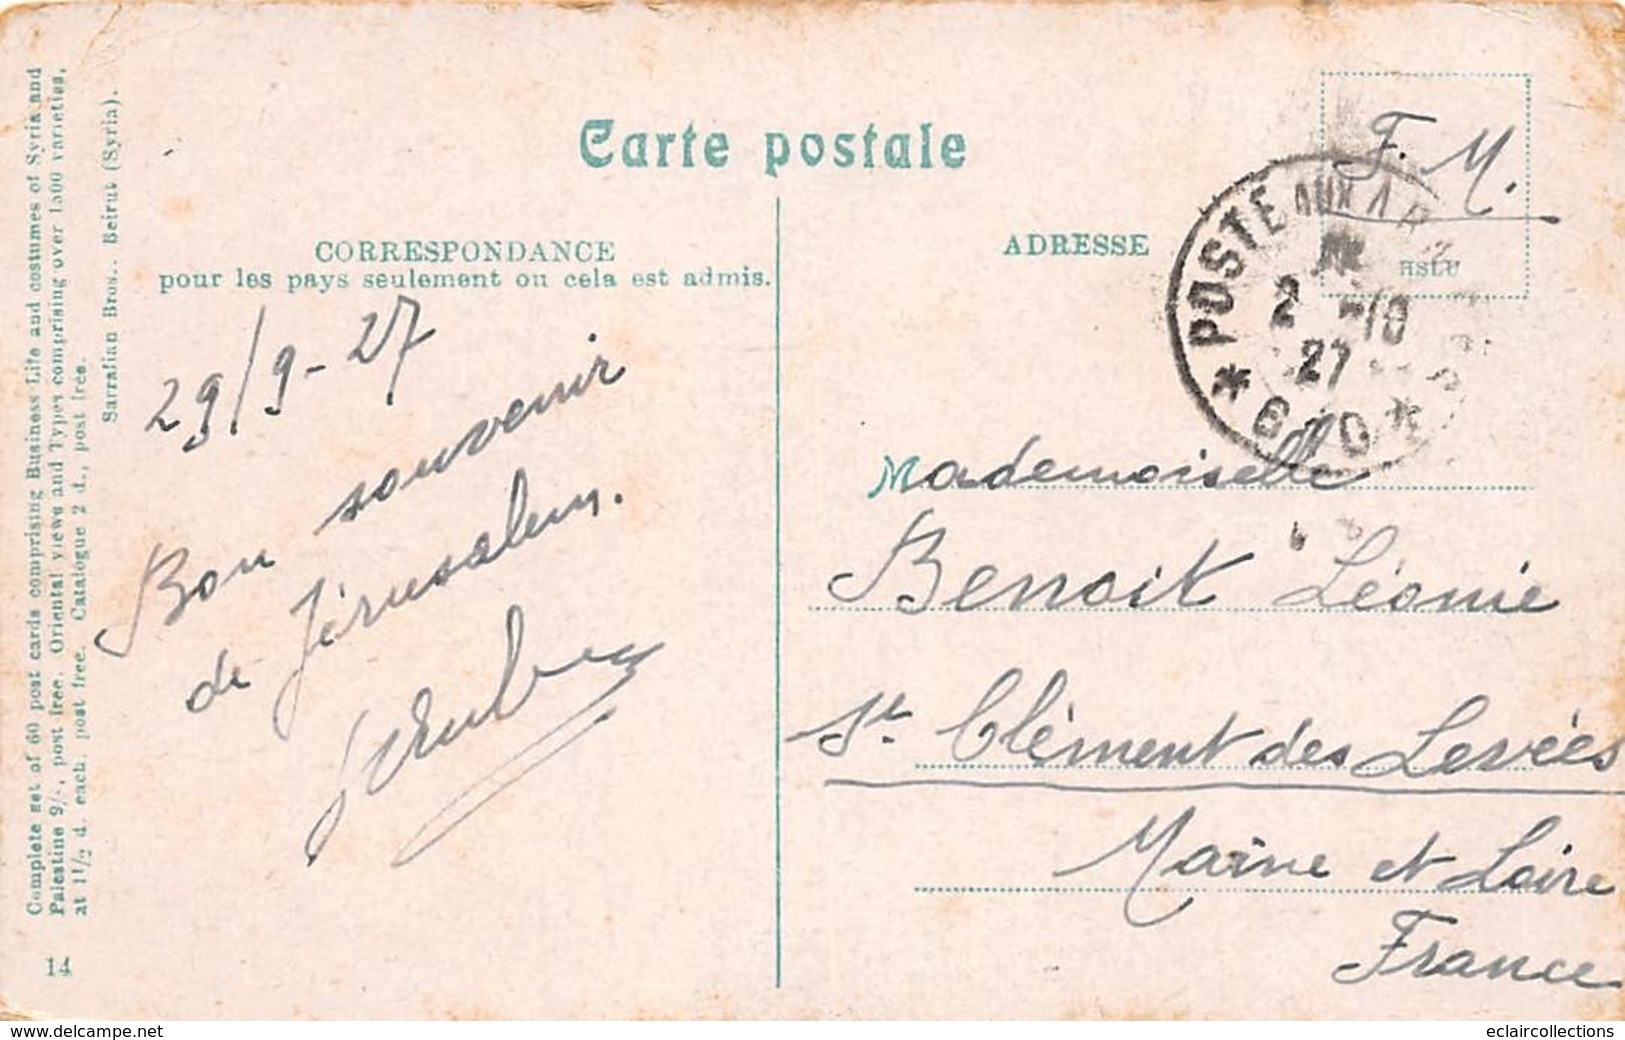 Complete set of 60 post cards comprising Business Life and costumes of Syria and
Palestine 9/-, post free. Oriental views and Types comprising over 1500 varieties,
at 1 1/2 d. each, post free. Catalogue 2 d., post free.
Sarrafian Bros., Beirut (Syria).
14
Carte postale
CORRESPONDANCE
pour les pays seulement ou cela est admis.
29/9-27
Bon souvenir
de Jérusalem.
ADRESSE
F. M.
HSLU
POSTE AUX AR
2 -10
27
* 600 *
Mademoiselle
Benoit Léonie
St Clément des Levées
Maine et Loire
France
delcampe.net
eclaircollections